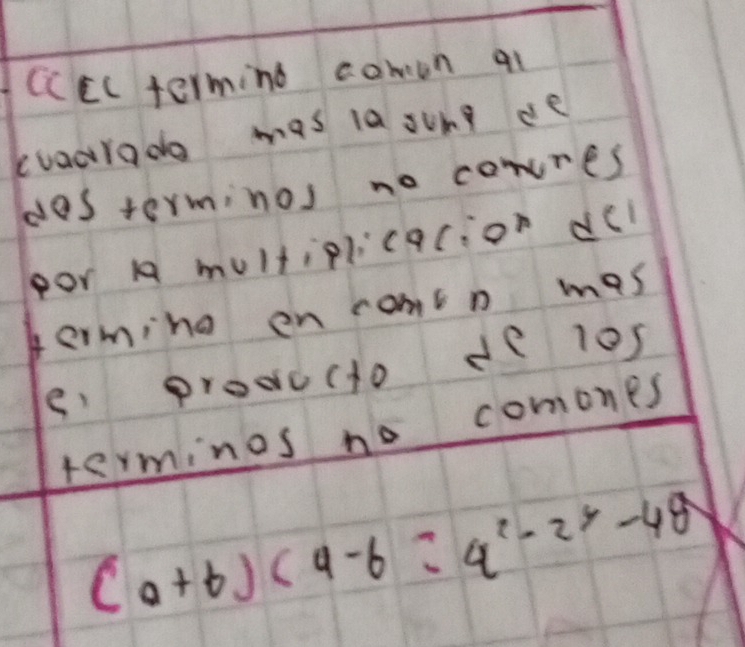 ((El termino comun al
cuadrado mas la suma de
dos terminos no comunes
por la multiplicacion del
termino en comun mas
el producto de los
terminos no comones
(a+6)(a-6 = a²-2y-48